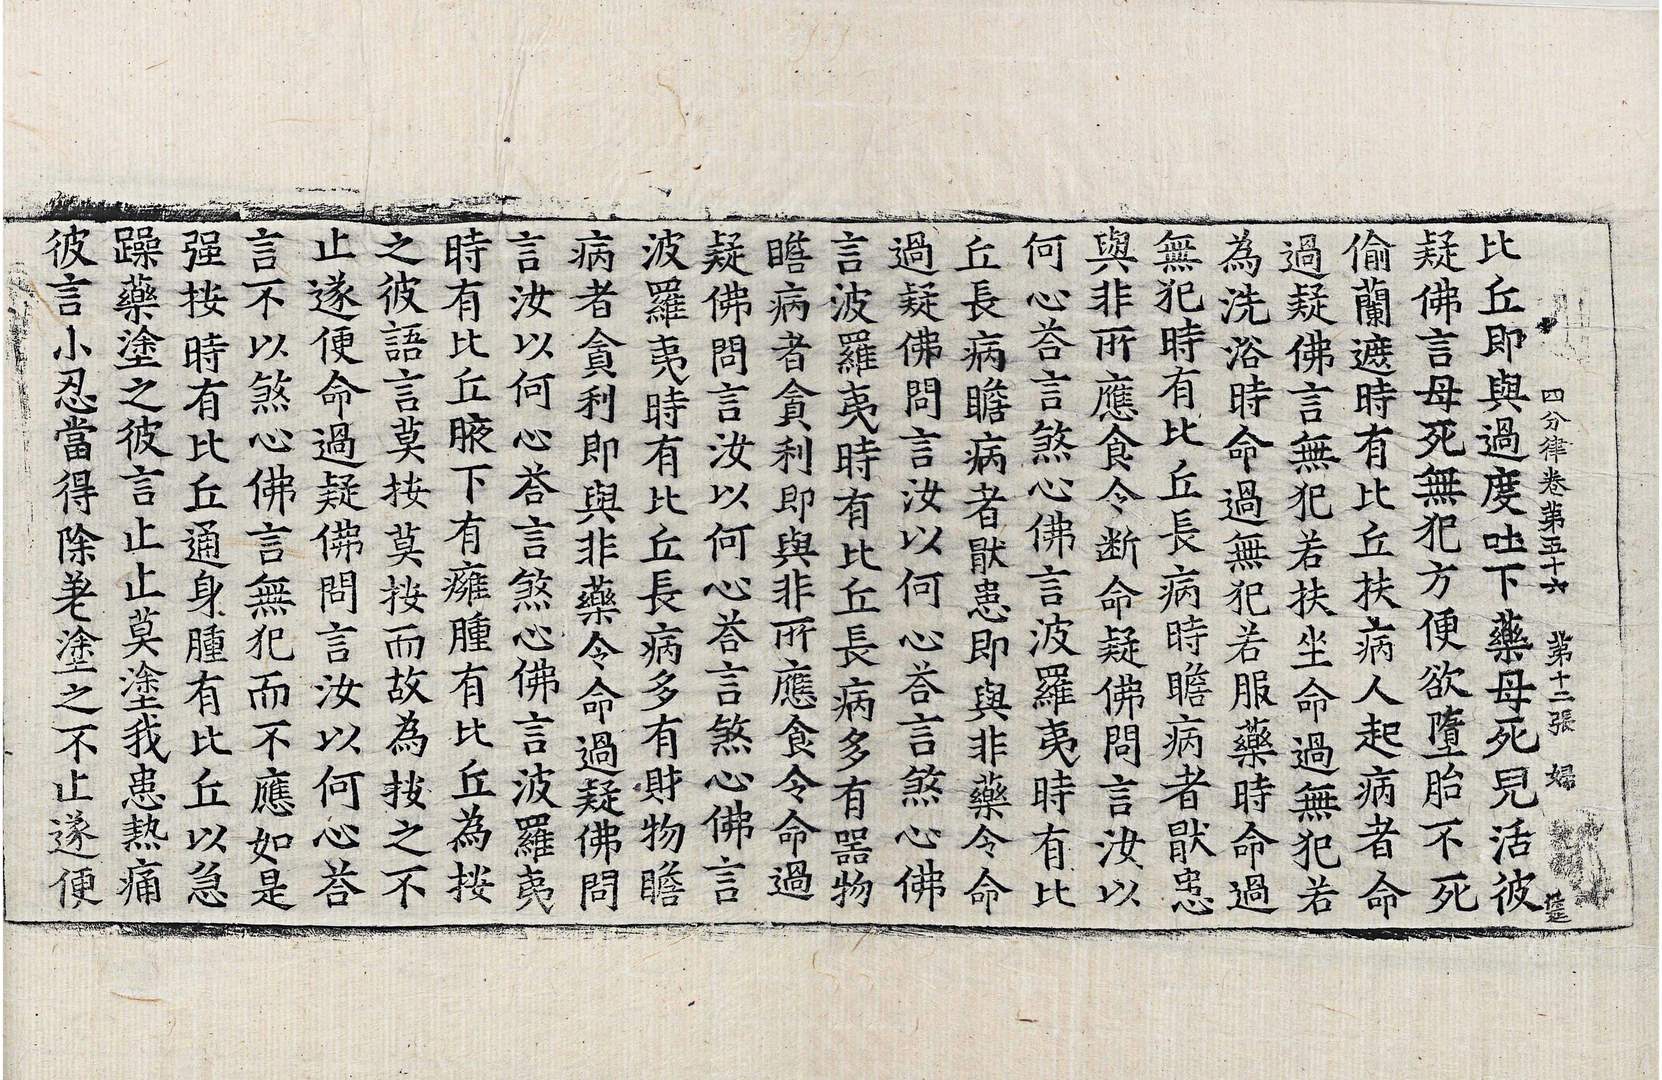 四分律卷第五十六　第十二張　婦
比丘即與過度吐下藥母死兒活彼
疑佛言母死無犯方便欲墮胎不死
偷蘭遮時有比丘扶病人起病者命
過疑佛言無犯若扶坐命過無犯若
為洗浴時命過無犯若服藥時命過
無犯時有比丘長病時瞻病者猒患
與非所應食令断命疑佛問言汝以
何心荅言煞心佛言波羅夷時有比
丘長病瞻病者猒患即與非藥令命
過疑佛問言汝以何心荅言煞心佛
言波羅夷時有比丘長病多有器物
瞻病者貪利即與非所應食令命過
疑佛問言汝以何心荅言煞心佛言
波羅夷時有比丘長病多有財物瞻
病者貪利即與非藥令命過疑佛問
言汝以何心荅言煞心佛言波羅夷
時有比丘腋下有癰腫有比丘為按
之彼語言莫按莫按而故為按之不
止遂便命過疑佛問言汝以何心荅
言不以煞心佛言無犯而不應如是
强按時有比丘通身腫有比丘以急
躁藥塗之彼言止止莫塗我患熱痛
彼言小忍當得除差塗之不止遂便